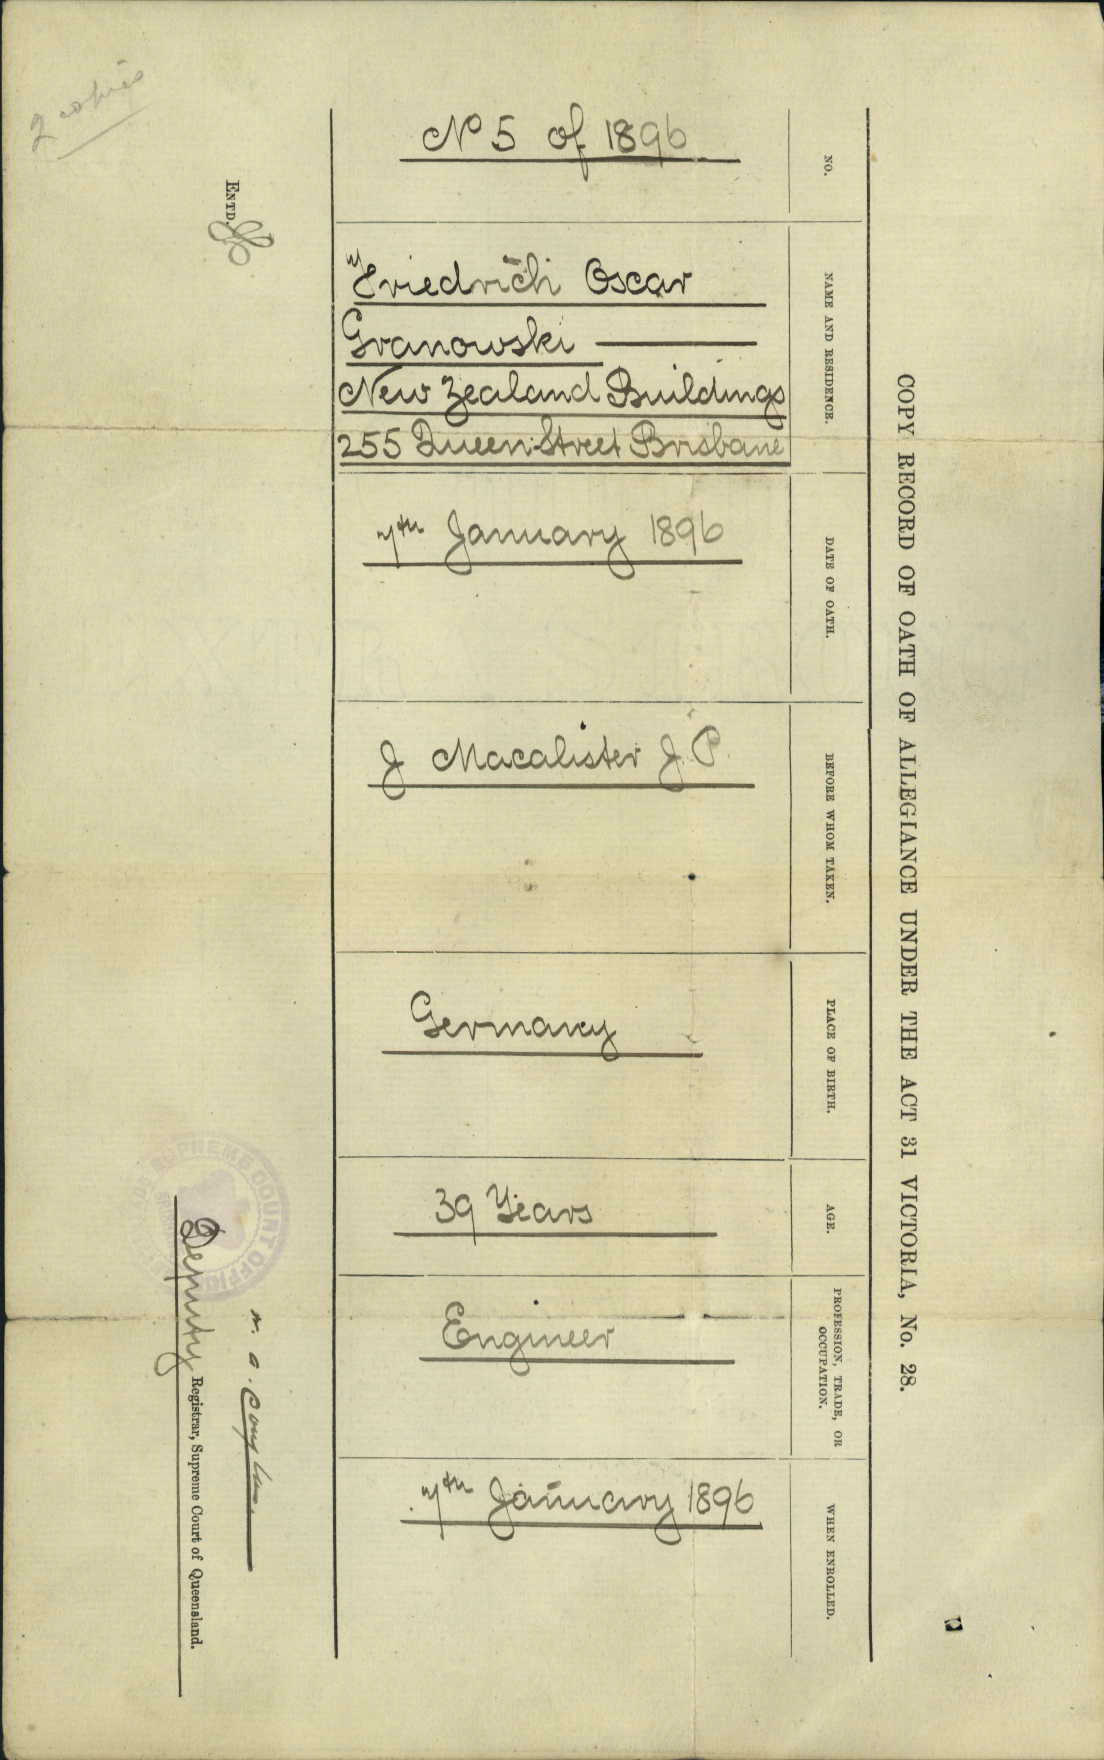 COPY RECORD OF OATH OF ALLEGIANCE UNDER THE ACT 31 VICTORIA, No. 28.
NO.
No 5 of 1896
NAME AND RESIDENCE.
Friedrich Oscar
Granowski
New Zealand Buildings
255 Queen Street Brisbane
DATE OF OATH.
7th January 1896
BEFORE WHOM TAKEN.
J Macalister J.P.
PLACE OF BIRTH.
Germany
AGE.
39 Years
PROFESSION, TRADE, OR
OCCUPATION.
Engineer
WHEN ENROLLED.
7th January 1896
ENTD.
2 copies
Deputy Registrar, Supreme Court of Queensland.
SUPREME COURT OFFICE